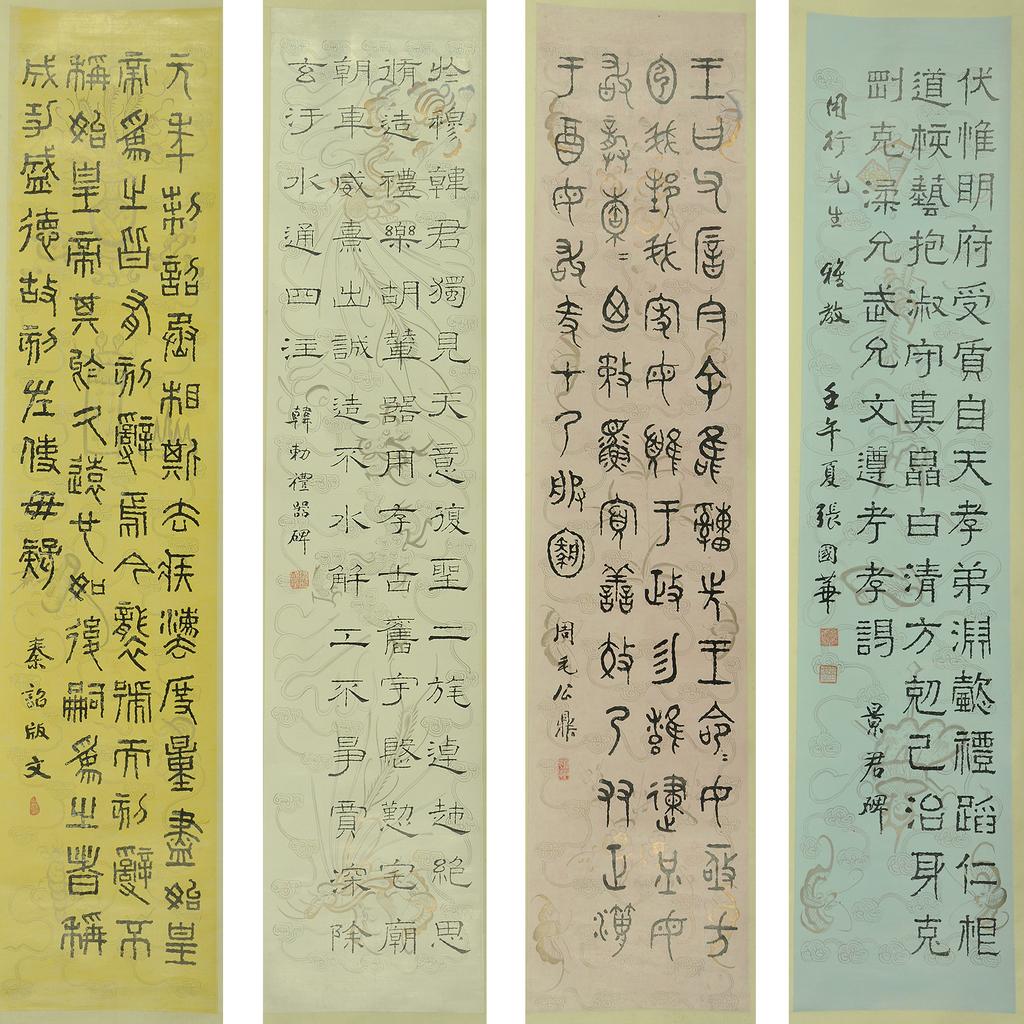 伏惟明府受質自天孝弟淵懿禮蹈仁相
道核藝抱淑守真皛白清方剋己治身克
剛克柔允武允文遵孝孝謁
景君碑
用行先生 雅教 壬午夏張國華
王曰父今余唯先王命命女亟方
我邦我家女于政勿雝建女
敢橐橐鰥寡善效乃友正
于酉女敢
周毛公鼎
於穆韓君獨見天意復聖二族逴越絕思
脩造禮樂胡輦器用存古舊宇慇懃宅廟
朝車威熹出誠造不水解工不爭賈深除
玄汙水通四注
韓勅禮器碑
元年制詔丞相斯去疾灋度量盡始皇
帝為之皆有刻辭焉今襲號而刻辭不
稱始皇帝其於久遠也如後嗣為之者稱
成功盛德故刻左使毋疑
秦詔版文